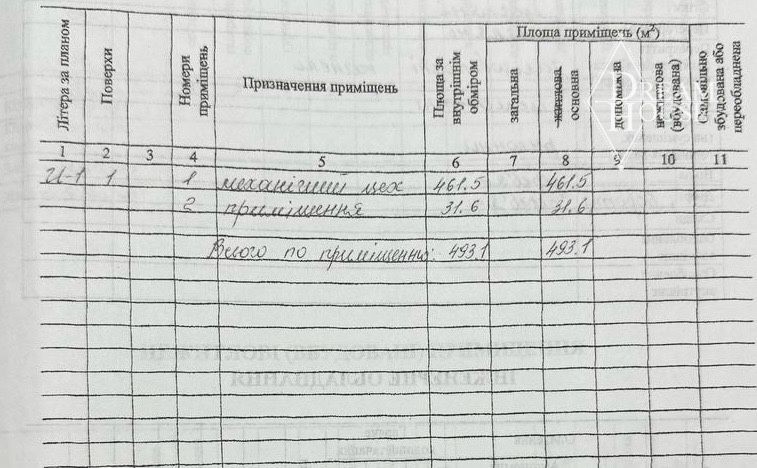 Площа приміщень (м²)
Літера за планом
Поверхи
Номери приміщень
Призначення приміщень
Площа за внутрішнім обміром
загальна
житлова, основна
допоміжна
нежитлова (вбудована)
Самовільно збудована або переобладнена
DREAM HOUSE
1 2 3 4 5 6 7 8 9 10 11
И-1 1 1 механічний цех 461.5 461.5
2 приміщення 31.6 31.6
Всього по приміщенню: 493.1 493.1